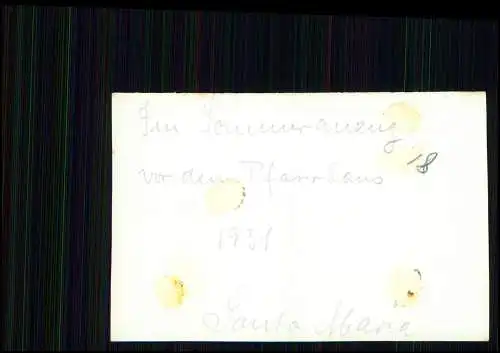 Im Sommeranzug
18
vor dem Pfarrhaus
1931
Santa Maria